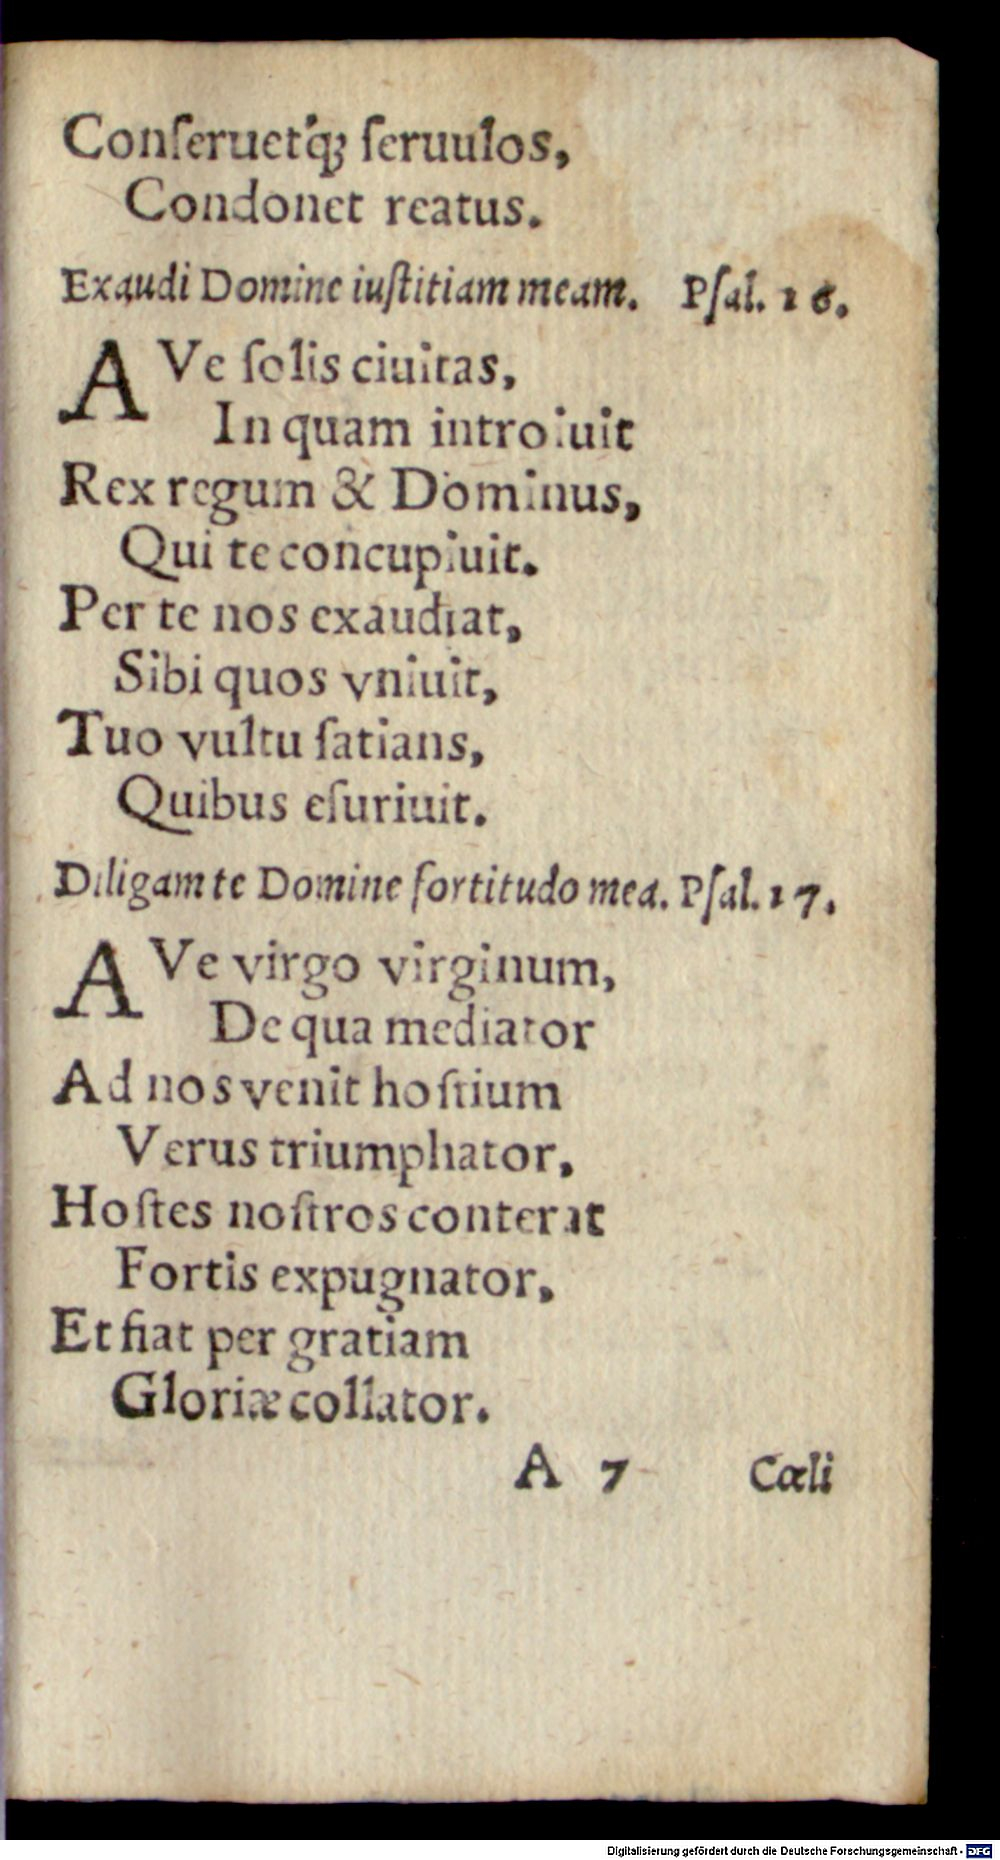 Conſeruet'q; ſeruulos,
Condonet reatus.
Exaudi Domine iuſtitiam meam. Pſal. 16.
AVe ſolis ciuitas,
In quam introiuit
Rex regum & Dominus,
Qui te concupiuit.
Per te nos exaudiat,
Sibi quos vniuit,
Tuo vultu ſatians,
Quibus eſuriuit.
Diligam te Domine fortitudo mea. Pſal. 17.
AVe virgo virginum,
De qua mediator
Ad nos venit hoſtium
Verus triumphator,
Hoſtes noſtros conterat
Fortis expugnator,
Et fiat per gratiam
Gloriæ collator.
A 7 Cœli
Digitalisierung gefördert durch die Deutsche Forschungsgemeinschaft - DFG